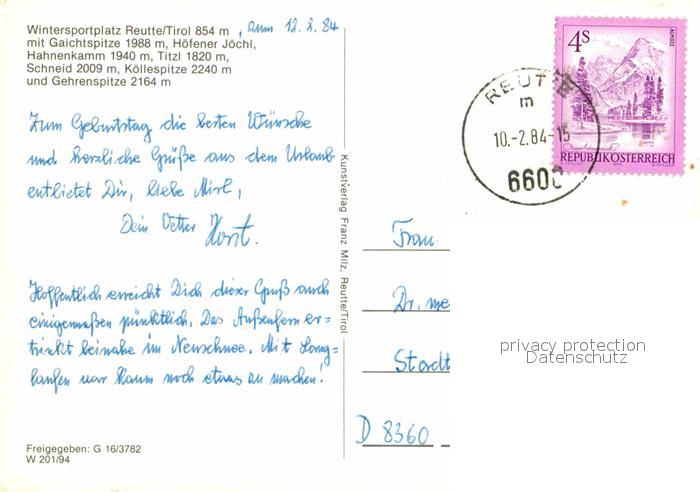 Wintersportplatz Reutte/Tirol 854 m, zum 12.2.84
mit Gaichtspitze 1988 m, Höfener Jöchl,
Hahnenkamm 1940 m, Titzl 1820 m,
Schneid 2009 m, Köllespitze 2240 m
und Gehrenspitze 2164 m
Zum Geburtstag die besten Wünsche
und herzliche Grüße aus dem Urlaub
entbietet Dir, liebe Mirl,
Dein Vetter Horst.
Hoffentlich erreicht Dich dieser Gruß auch
einigermaßen pünktlich. Das Außerfern er=
trinkt beinahe im Neuschnee. Mit Lang=
laufen war kaum noch etwas zu machen!
Freigegeben: G 16/3782
W 201/94
Kunstverlag Franz Milz, Reutte/Tirol
REUTTE
m
10.-2.84-15
6600
4S
ALMSEE
REPUBLIK ÖSTERREICH
Frau
Dr. me
Stadt
D 8360
privacy protection
Datenschutz